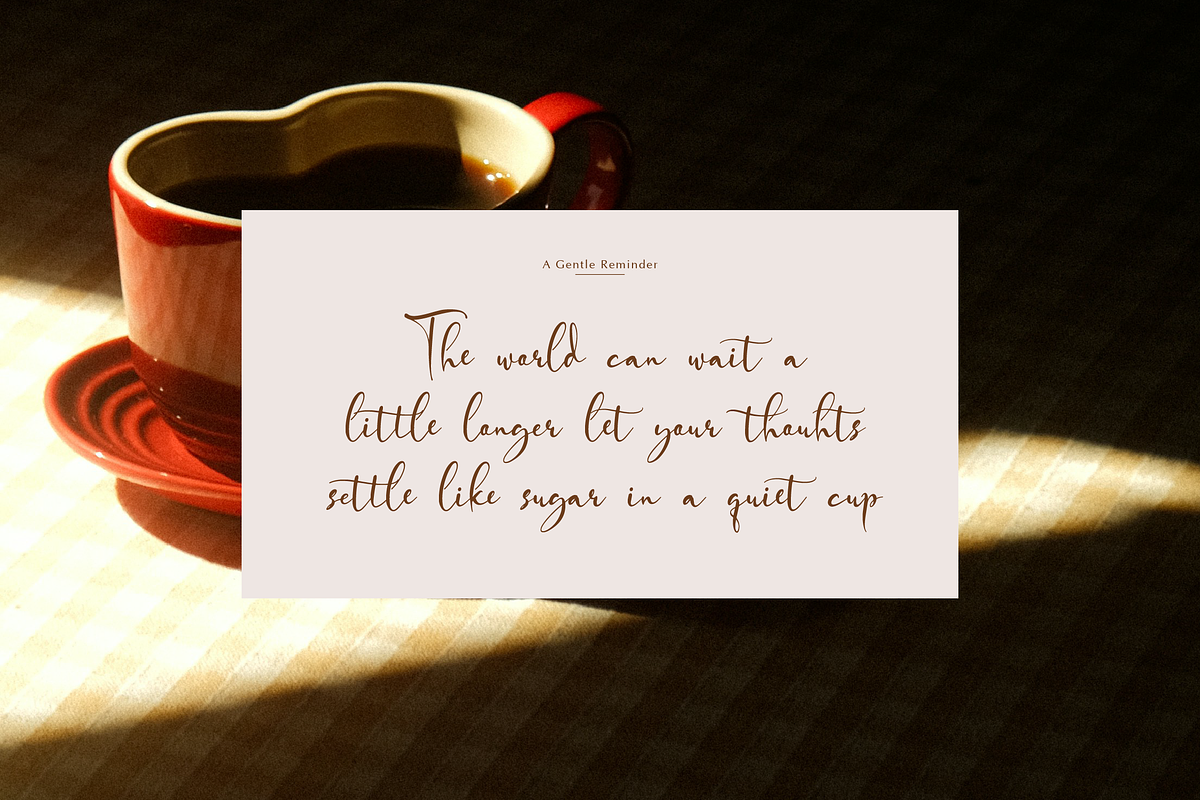 A Gentle Reminder
The world can wait a
little longer let your thouhts
settle like sugar in a quiet cup